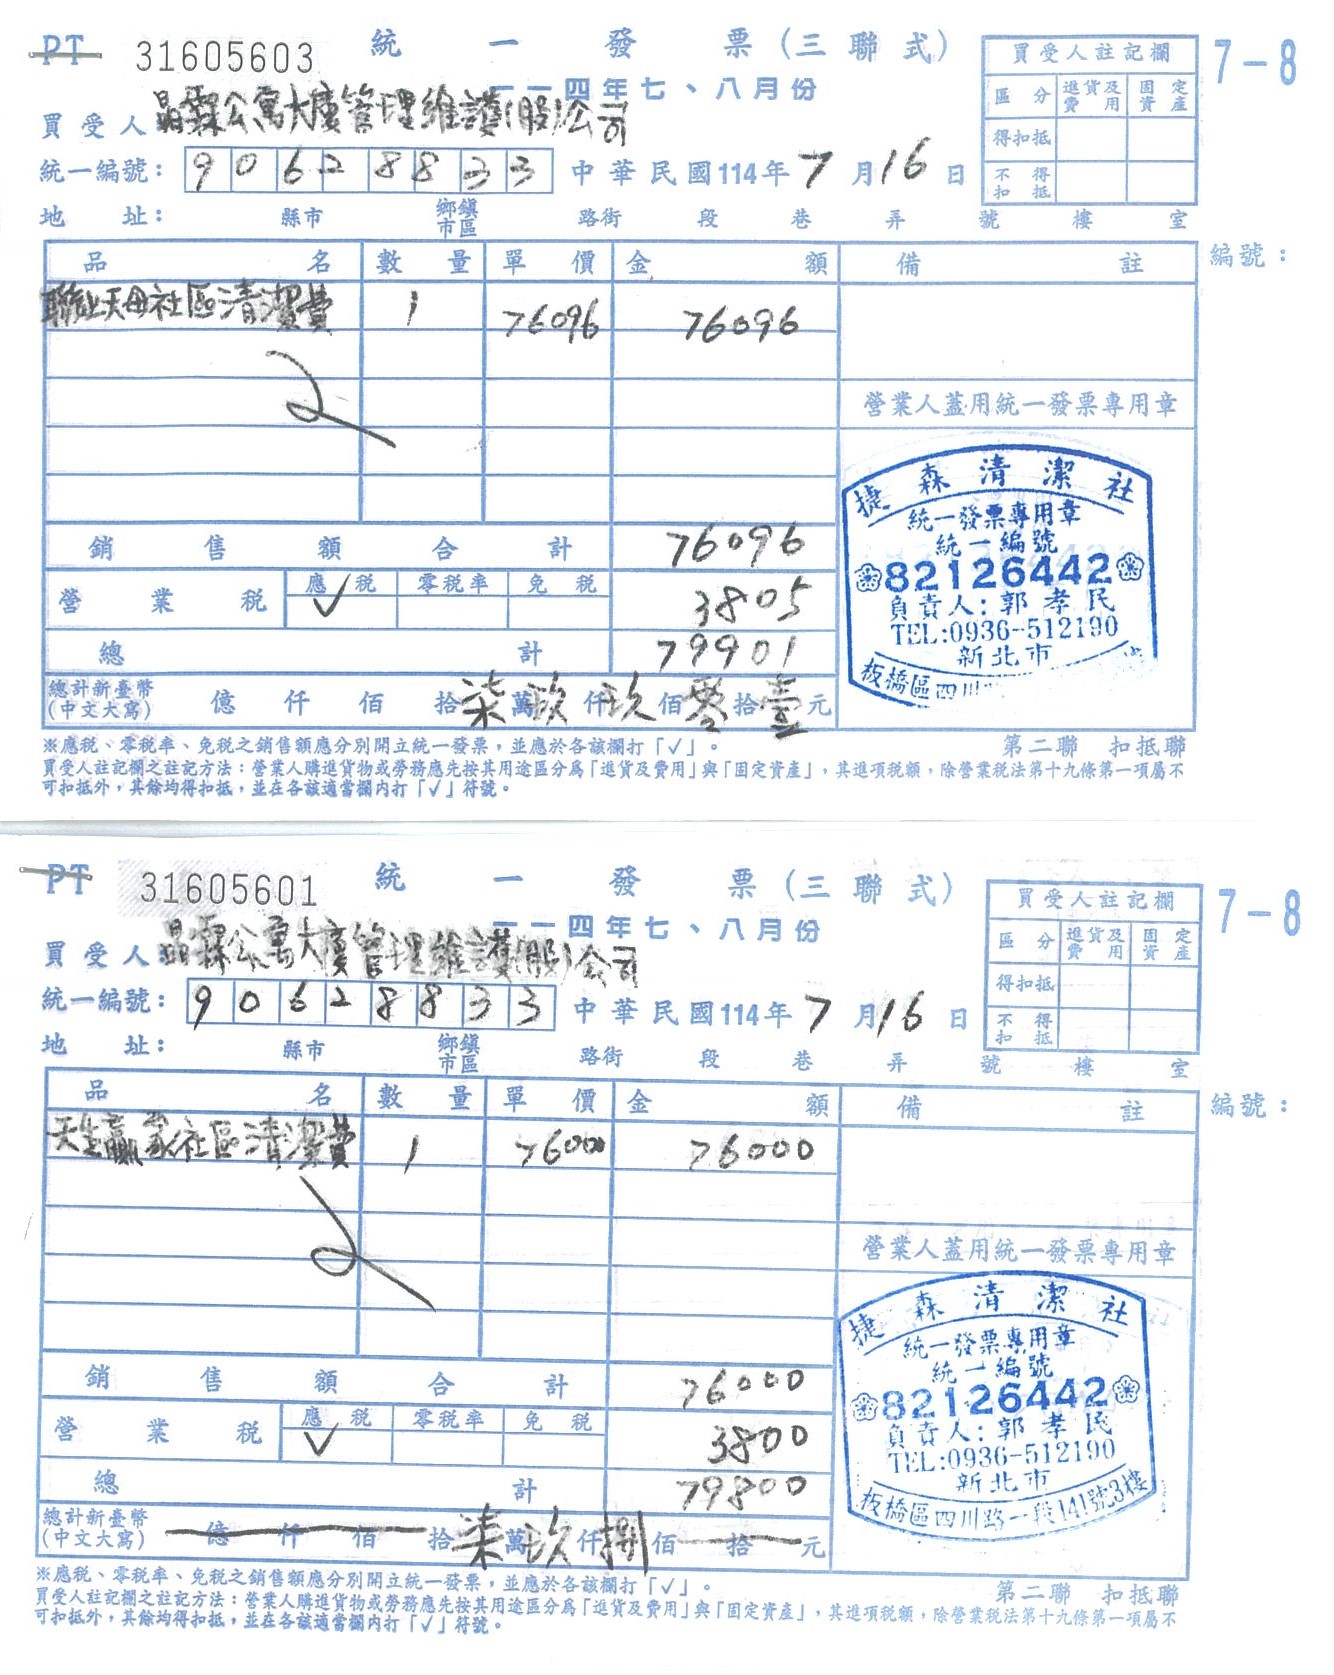 PT 31605603 統一發票(三聯式) 7-8
一一四年七、八月份
買受人: 晶霖公寓大廈管理維護(股)公司
統一編號: 90628833 中華民國114年7月16日
地址: 縣市 鄉鎮市區 路街 段 巷 弄 號 樓 室
買受人註記欄
區分 進貨及費用 固定資產
得扣抵
不得扣抵
品名 數量 單價 金額 備註 編號:
聯上天母社區清潔費 1 76096 76096
營業人蓋用統一發票專用章
捷森清潔社
統一發票專用章
統一編號
82126442
負責人:郭孝民
TEL:0936-512190
新北市
板橋區四川路
銷售額合計 76096
營業稅 應稅 ✓ 零稅率 免稅 3805
總計 79901
總計新臺幣(中文大寫) 億 仟 佰 拾柒萬玖仟玖佰零拾壹元
※應稅、零稅率、免稅之銷售額應分別開立統一發票,並應於各該欄打「✓」。 第二聯 扣抵聯
買受人註記欄之註記方法:營業人購進貨物或勞務應先按其用途區分為「進貨及費用」與「固定資產」,其進項稅額,除營業稅法第十九條第一項屬不
可扣抵外,其餘均得扣抵,並在各該適當欄內打「✓」符號。
PT 31605601 統一發票(三聯式) 7-8
一一四年七、八月份
買受人: 晶霖公寓大廈管理維護(股)公司
統一編號: 90628833 中華民國114年7月16日
地址: 縣市 鄉鎮市區 路街 段 巷 弄 號 樓 室
買受人註記欄
區分 進貨及費用 固定資產
得扣抵
不得扣抵
品名 數量 單價 金額 備註 編號:
天生贏家社區清潔費 1 76000 76000
營業人蓋用統一發票專用章
捷森清潔社
統一發票專用章
統一編號
82126442
負責人:郭孝民
TEL:0936-512190
新北市
板橋區四川路一段141號3樓
銷售額合計 76000
營業稅 應稅 ✓ 零稅率 免稅 3800
總計 79800
總計新臺幣(中文大寫) 億 仟 佰 拾柒萬玖仟捌佰 拾 元
※應稅、零稅率、免稅之銷售額應分別開立統一發票,並應於各該欄打「✓」。 第二聯 扣抵聯
買受人註記欄之註記方法:營業人購進貨物或勞務應先按其用途區分為「進貨及費用」與「固定資產」,其進項稅額,除營業稅法第十九條第一項屬不
可扣抵外,其餘均得扣抵,並在各該適當欄內打「✓」符號。